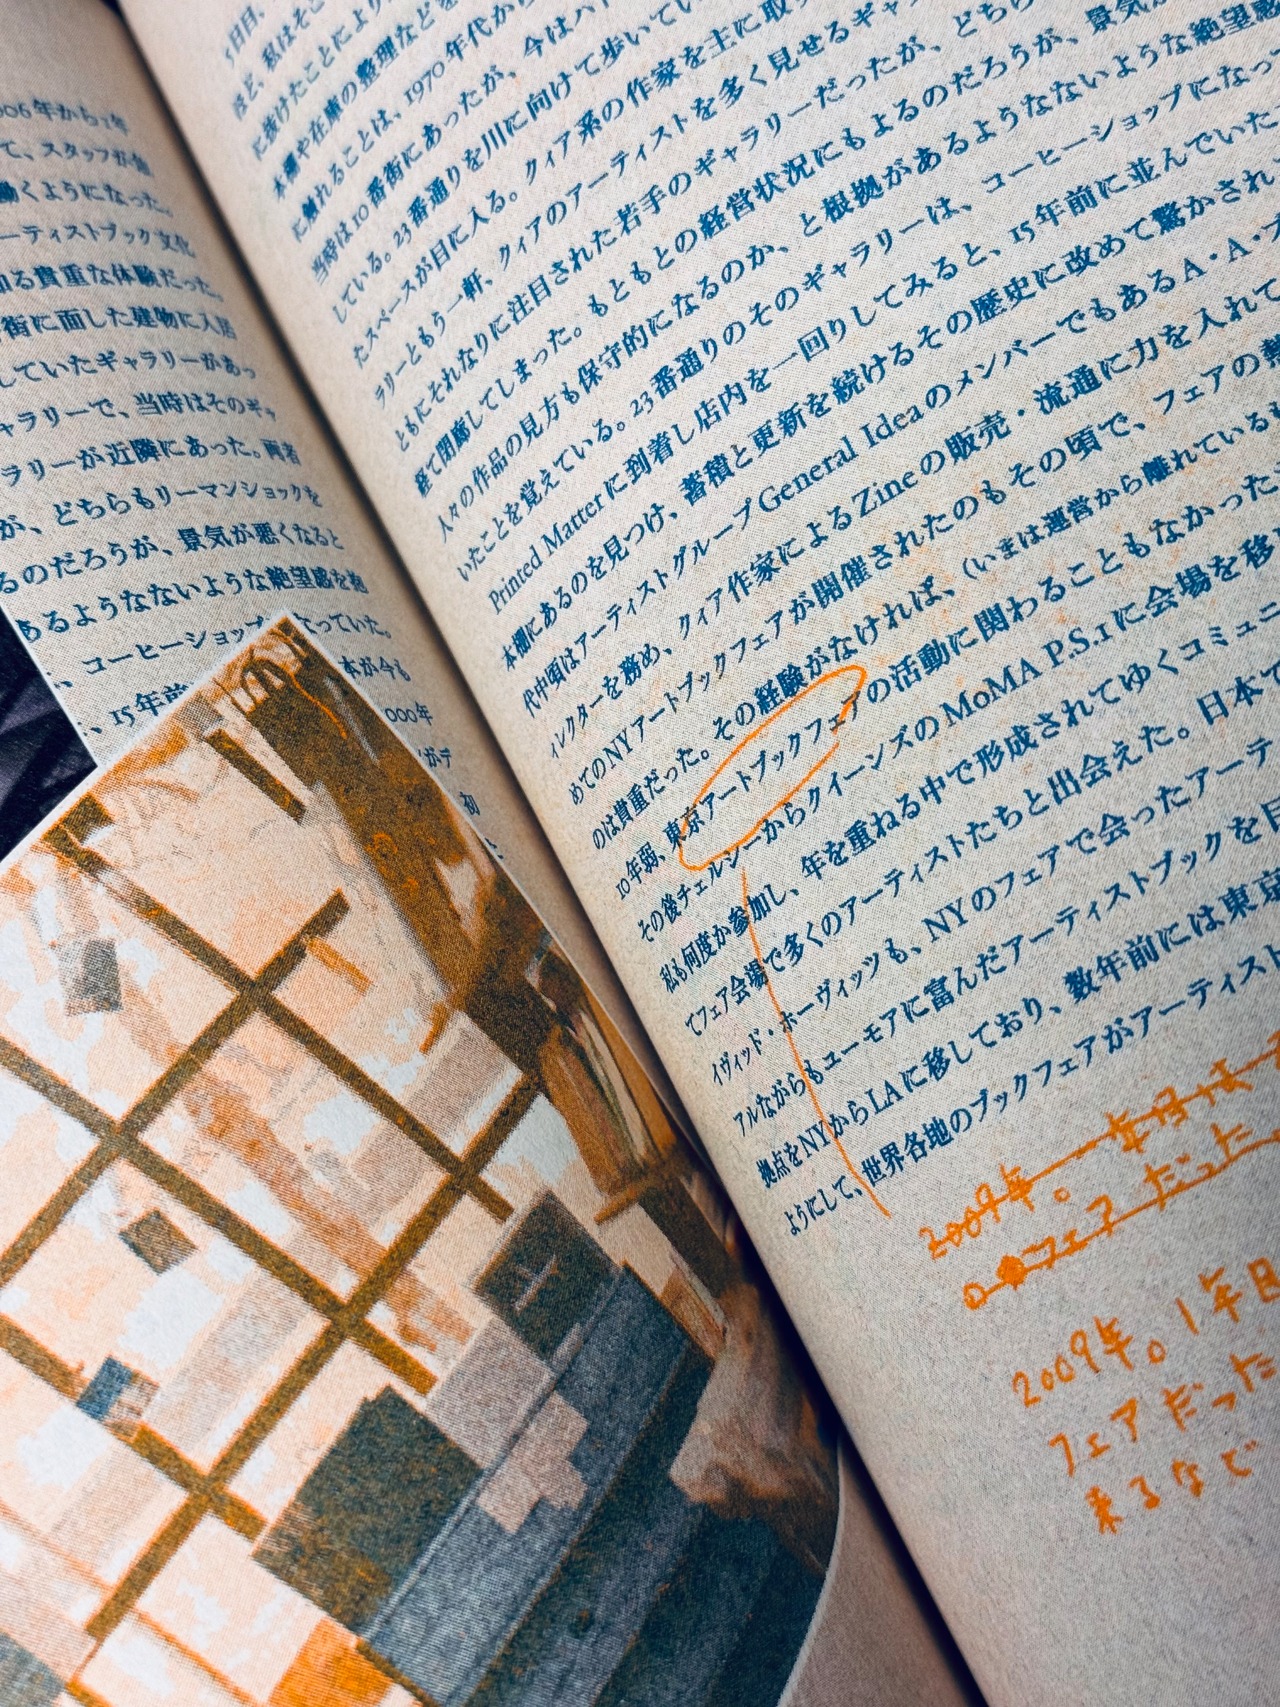 006年から1年
て、スタッフが
働くようになった。
ーティストブック文化
知る貴重な体験だった。
街に面した建物に入居
していたギャラリーがあっ
ャラリーで、当時はそのギャ
ラリーが近隣にあった。両者
が、どちらもリーマンショックを
るのだろうが、景気が悪くなると
あるようなないような絶望感を
、コーヒーショップ っていた。
、15年前 本が今も
000年
がデ
初
5日目、
ほど、私はそこ
に抜けたことにより
本棚や在庫の整理などを
に触れることは、1970年代から
当時は10番街にあったが、今はハド
している。23番通りを川に向けて歩いてい
たスペースが目に入る。クィア系の作家を主に取
ラリーともう一軒、クィアのアーティストを多く見せるギャ
ともにそれなりに注目された若手のギャラリーだったが、どちら
経て閉廊してしまった。もともとの経営状況にもよるのだろうが、景気が
人々の作品の見方も保守的になるのか、と根拠があるようなないような絶望感
いたことを覚えている。23番通りのそのギャラリーは、コーヒーショップになっ
Printed Matterに到着し店内を一回りしてみると、15年前に並んでいた
本棚にあるのを見つけ、蓄積と更新を続けるその歴史に改めて驚かされ
代中頃はアーティストグループGeneral Ideaのメンバーでもある A・A・ブ
ィレクターを務め、クィア作家によるZineの販売・流通に力を入れて
めてのNYアートブックフェアが開催されたのもその頃で、フェアの
のは貴重だった。その経験がなければ、(いまは運営から離れている
10年弱、東京アートブックフェアの活動に関わることもなかった
その後チェルシーからクイーンズのMoMA P.S.1に会場を移
私も何度か参加し、年を重ねる中で形成されてゆくコミュニ
てフェア会場で多くのアーティストたちと出会えた。日本で
イヴィッド・ホーヴィッツも、NYのフェアで会ったアーテ
アルながらもユーモアに富んだアーティストブックを
拠点をNYからLAに移しており、数年前には東京
ようにして、世界各地のブックフェアがアーティスト
2009年。
フェアだった
2009年。1年目
フェアだった
来るなど